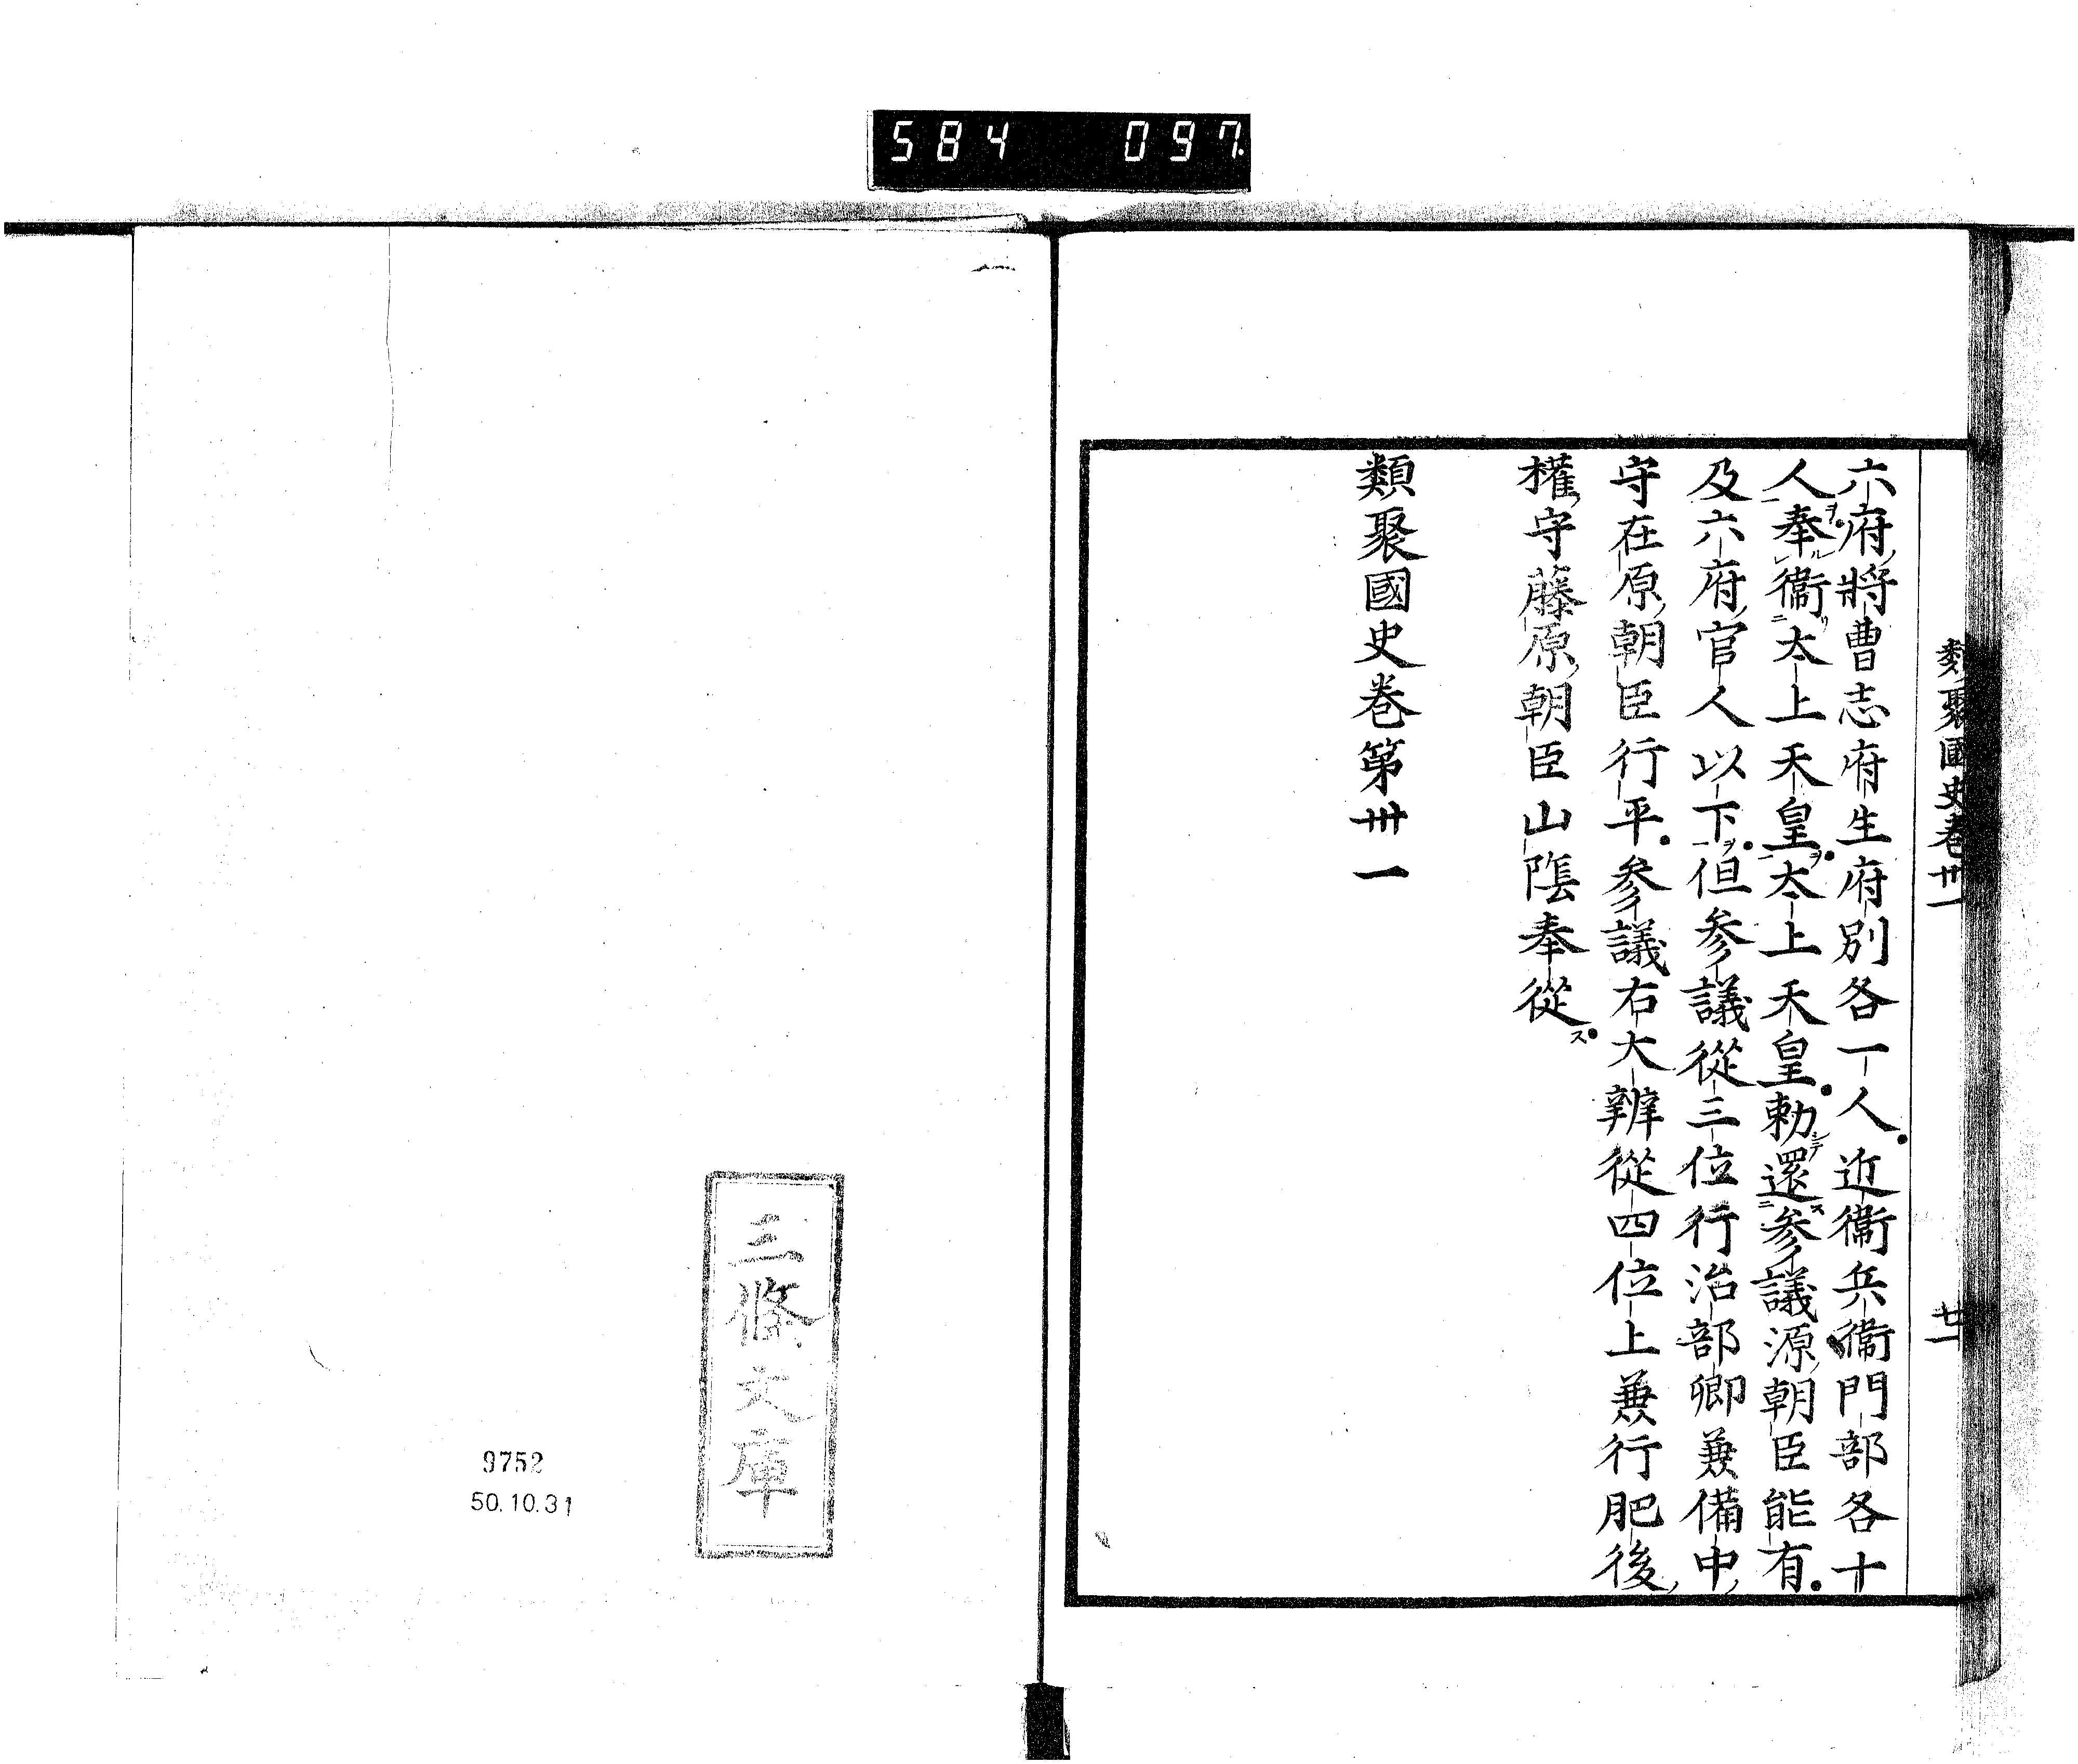 584 097
類聚國史卷卅一
廿一
六府將曹志府生府別各一人近衞兵衞門部各十
人奉衞太上天皇太上天皇勅還參議源朝臣能有
及六府官人以下但參議從三位行治部卿兼備中
守在原朝臣行平參議右大辨從四位上兼行肥後
權守藤原朝臣山陰奉從
類聚國史卷第卅一
三條文庫
9752
50.10.31